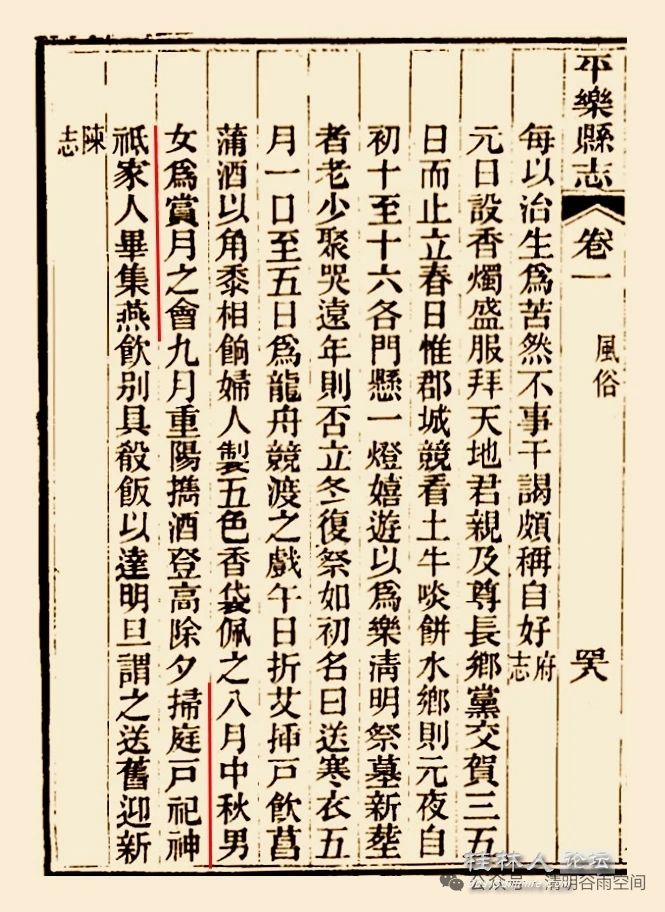 平樂縣志 卷一 風俗
每以治生爲苦然不事干謁頗稱自好府志
元日設香燭盛服拜天地君親及尊長鄉黨交賀三五
日而止立春日惟郡城競看土牛啖餅水鄉則元夜自
初十至十六各門懸一燈嬉遊以爲樂淸明祭墓新塟
者老少聚哭遠年則否立冬復祭如初名曰送寒衣五
月一日至五日爲龍舟競渡之戲午日折艾揷戸飮菖
蒲酒以角黍相餉婦人製五色香袋佩之八月中秋男
女爲賞月之會九月重陽擕酒登高除夕掃庭戸祀神
祇家人畢集燕飮别具殽飯以達明旦謂之送舊迎新
陳志
桂林人论坛
公众号·清明谷雨空间